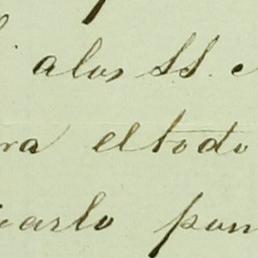 alos SS.
ra eltodo
arlo pon